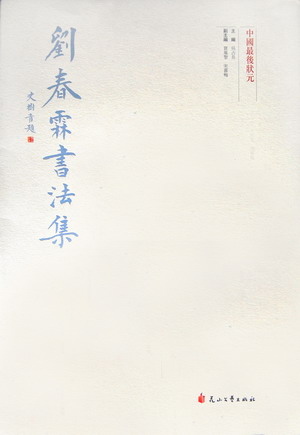 中國最後狀元
主編
副主編
劉春霖書法集
史樹青題
花山文藝出版社